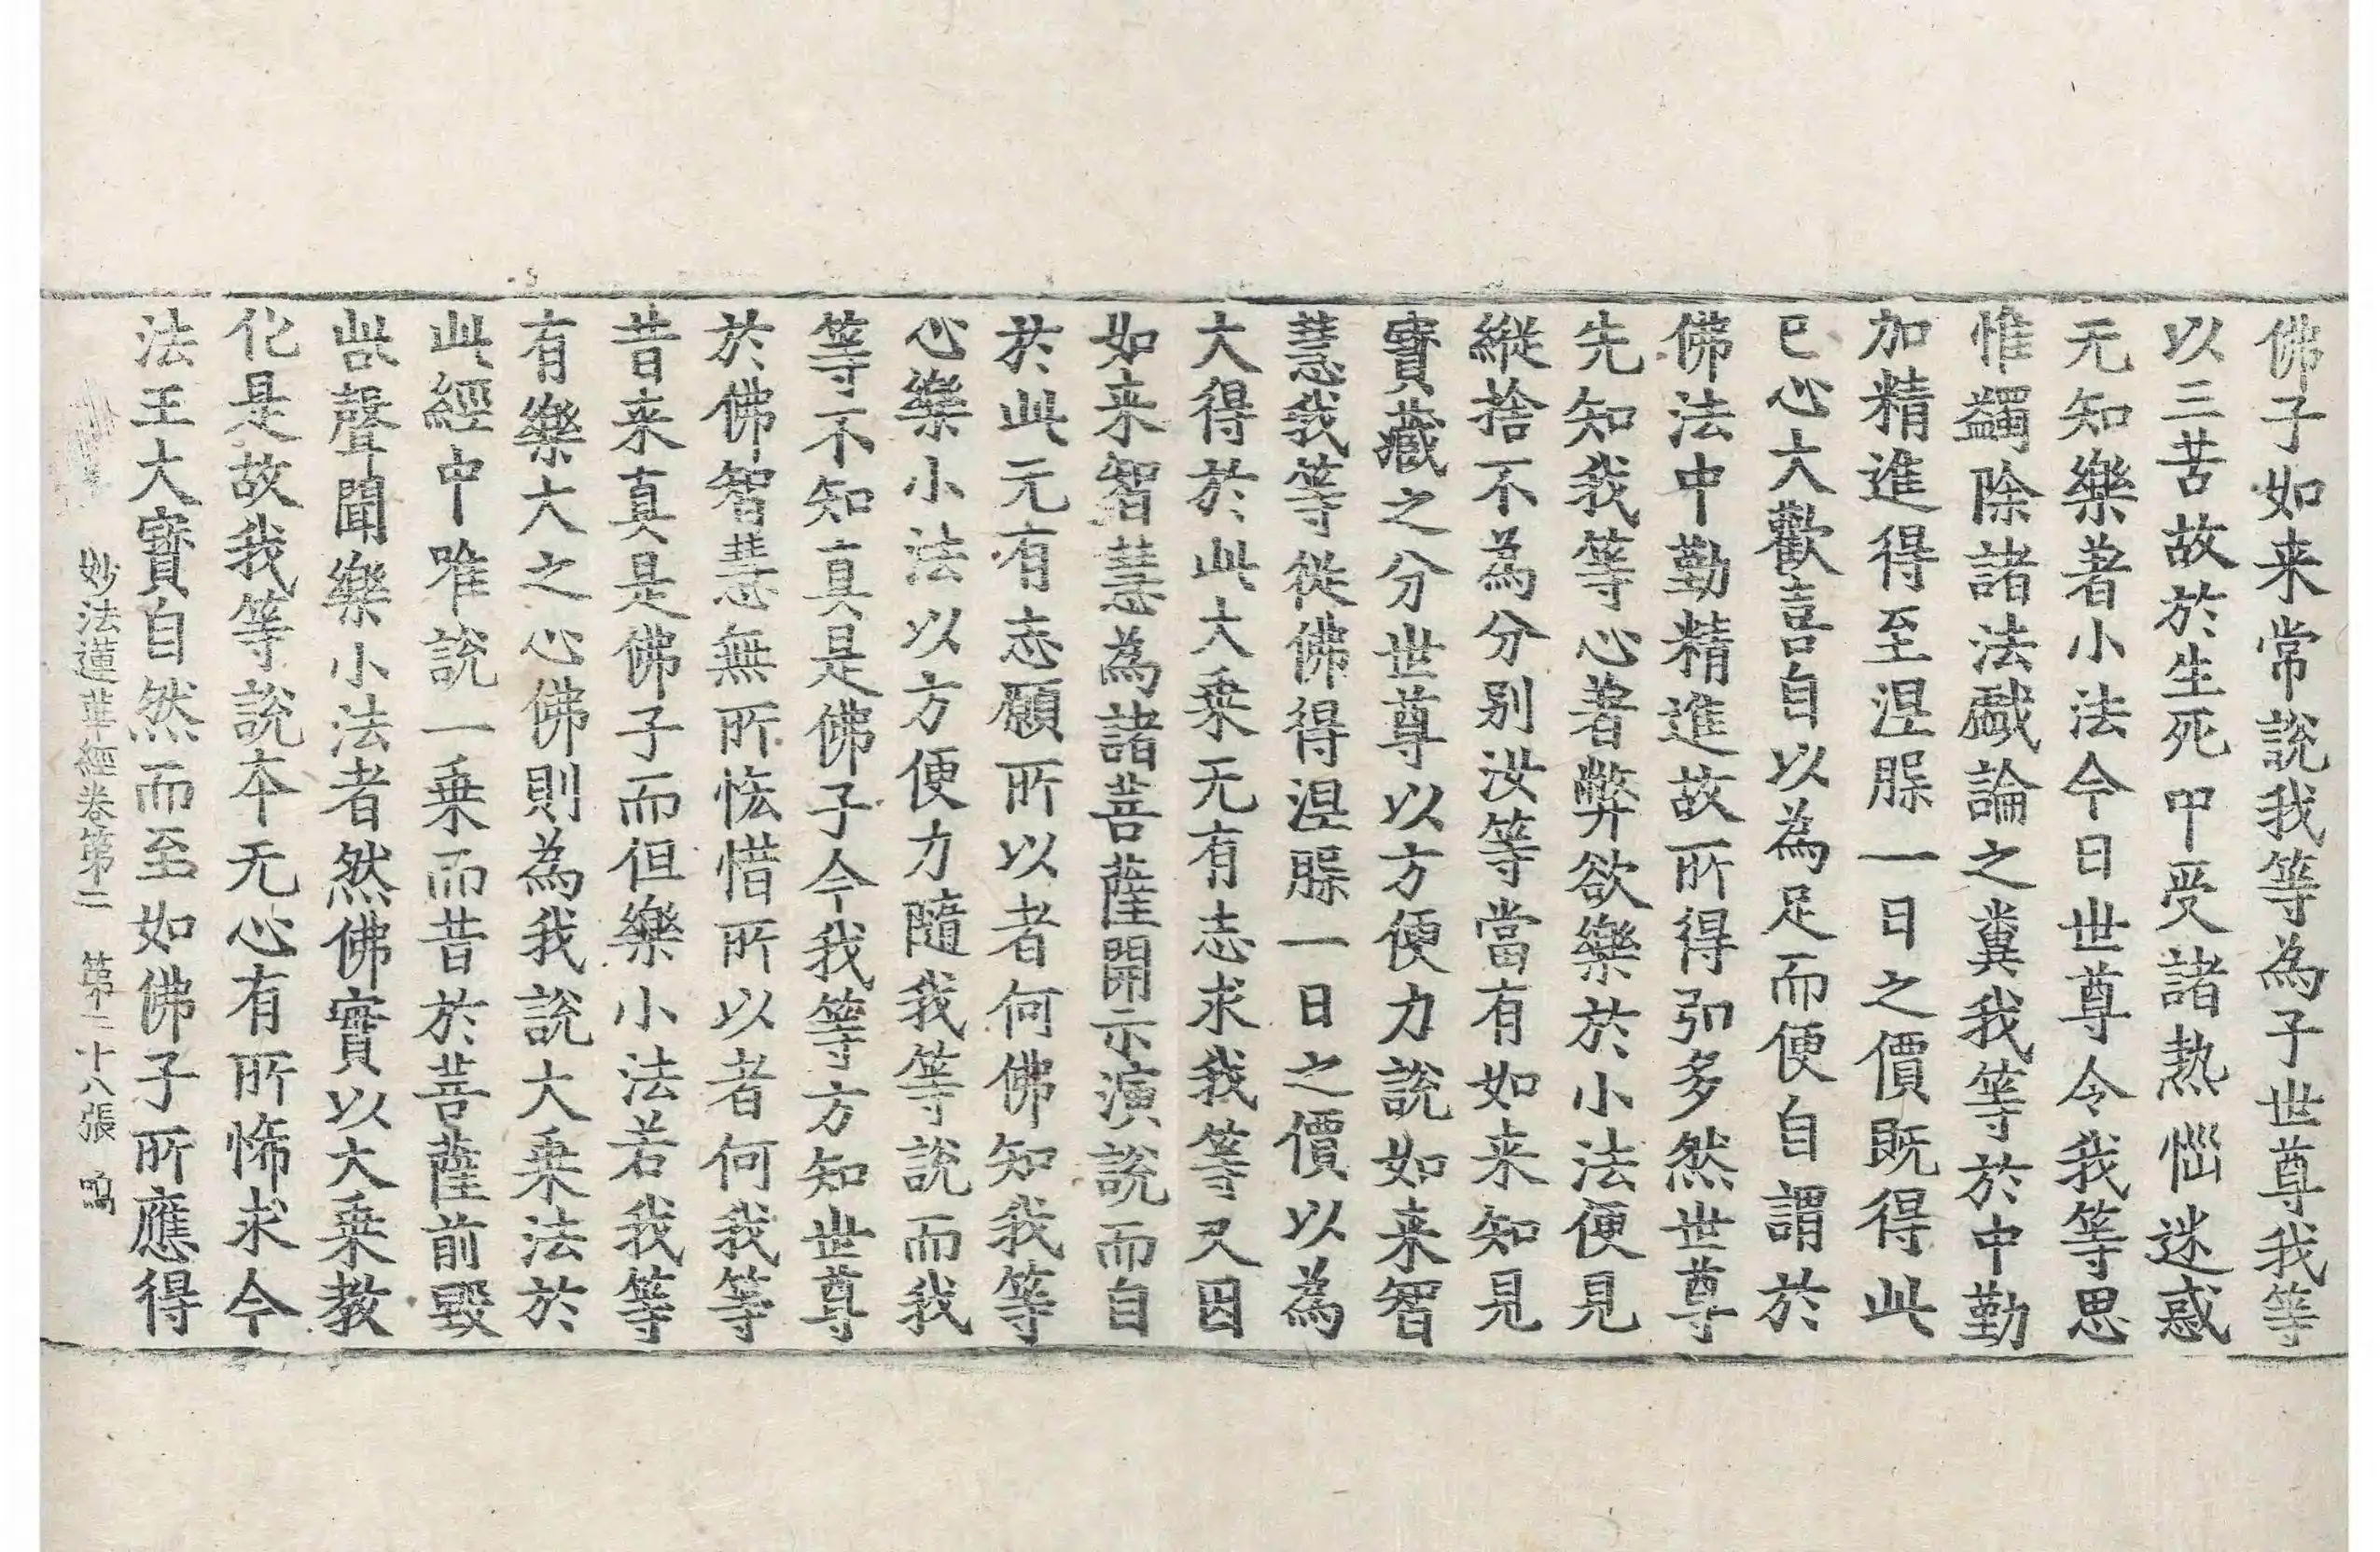 佛子如来常説我等為子世尊我等
以三苦故於生死中受諸熱惱迷惑
无知樂著小法今日世尊令我等思
惟蠲除諸法戱論之糞我等於中勤
加精進得至涅槃一日之價既得此
已心大歡喜自以為足而便自謂於
佛法中勤精進故所得弘多然世尊
先知我等心著弊欲樂於小法便見
縱捨不為分別汝等當有如来知見
寶藏之分世尊以方便力説如来智
慧我等從佛得涅槃一日之價以為
大得於此大乗无有志求我等又因
如来智慧為諸菩薩開示演説而自
於此无有志願所以者何佛知我等
心樂小法以方便力隨我等説而我
等不知真是佛子今我等方知世尊
於佛智慧無所恡惜所以者何我等
昔来真是佛子而但樂小法若我等
有樂大之心佛則為我説大乗法於
此經中唯説一乗而昔於菩薩前毀
呰聲聞樂小法者然佛實以大乗教
化是故我等説本无心有所悕求今
法王大寶自然而至如佛子所應得
妙法蓮華經卷第二 第二十八張